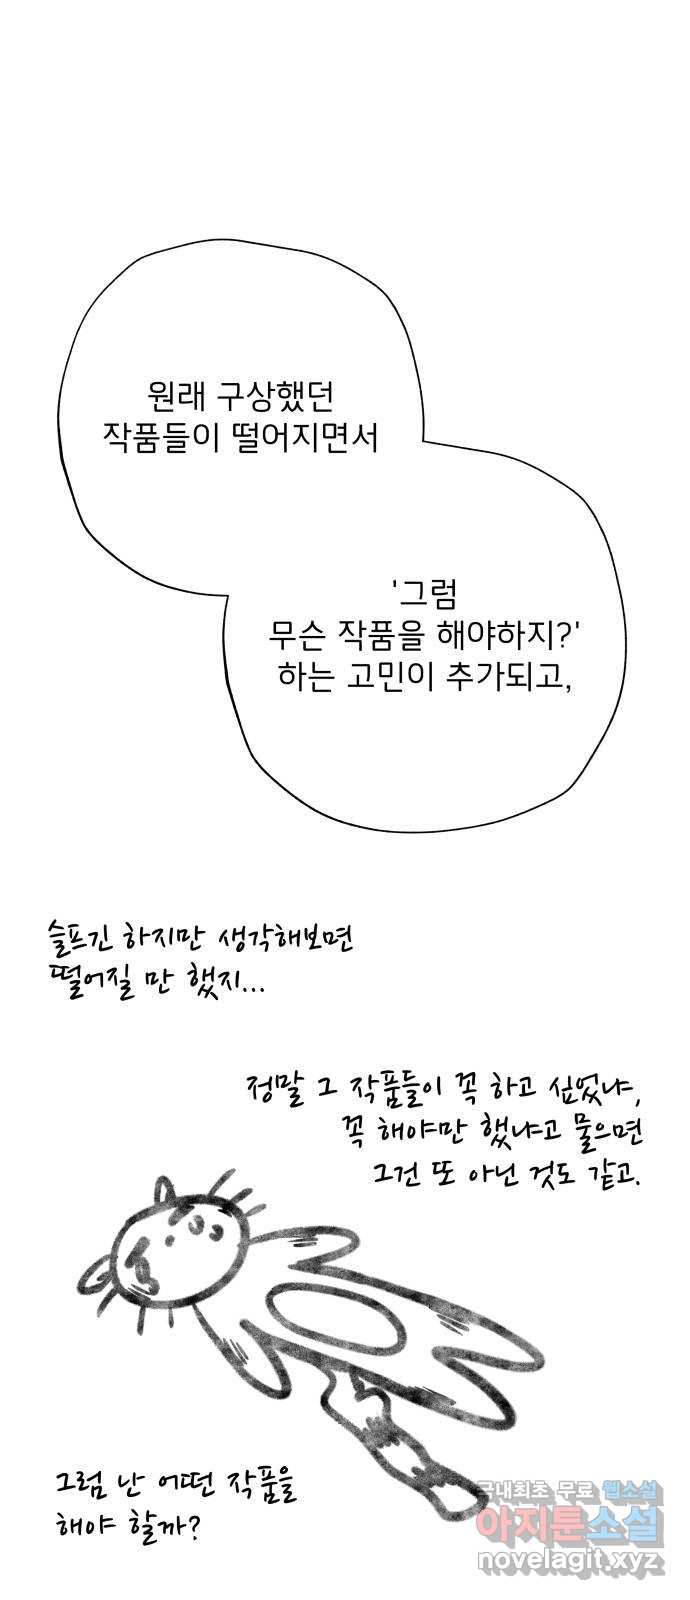 원래 구상했던
작품들이 떨어지면서
'그럼
무슨 작품을 해야하지?'
하는 고민이 추가되고,
슬프긴 하지만 생각해보면
떨어질 만 했지...
정말 그 작품들이 꼭 하고 싶었냐,
꼭 해야만 했냐고 물으면
그건 또 아닌 것도 같고.
그럼 난 어떤 작품을
해야 할까?
국내최초 무료 웹소설
아지툰소설
novelagit.xyz